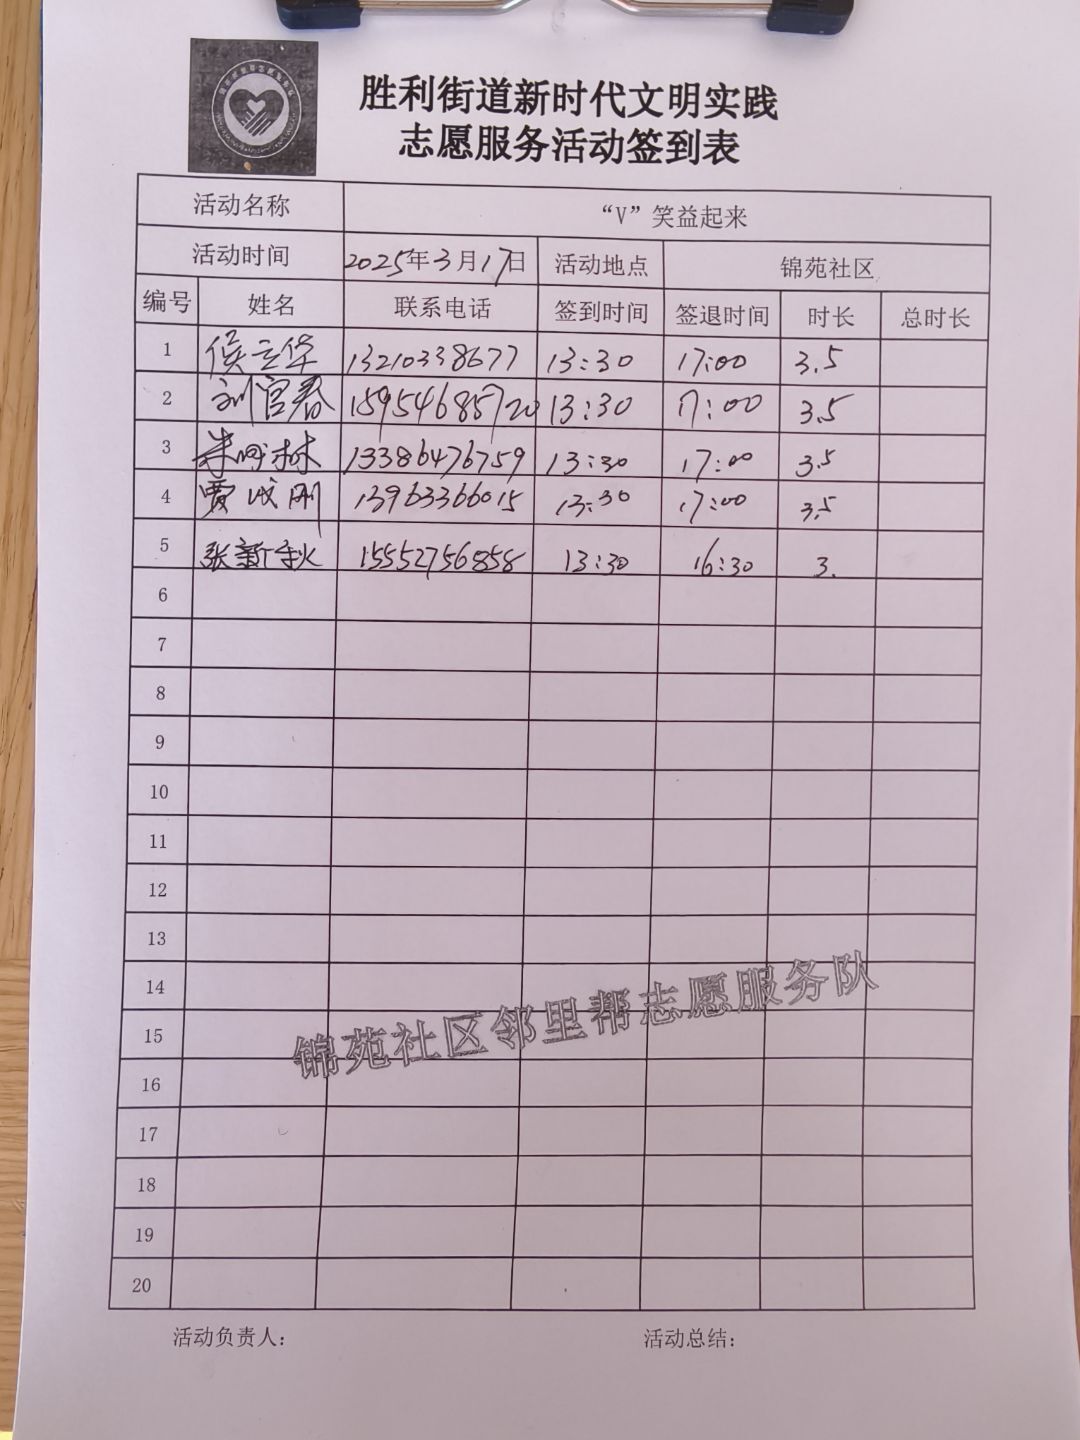 胜利街道新时代文明实践
志愿服务活动签到表
活动名称 “V”笑益起来
活动时间 2025年3月17日 活动地点 锦苑社区
编号 姓名 联系电话 签到时间 签退时间 时长 总时长
1 侯立华 13210338677 13:30 17:00 3.5
2 刘官春 15954685720 13:30 17:00 3.5
3 13386476759 13:30 17:00 3.5
4 贾成刚 13963366015 13:30 17:00 3.5
5 张新秋 15552756858 13:30 16:30 3.
6
7
8
9
10
11
12
13
14
15
16
17
18
19
20
锦苑社区邻里帮志愿服务队
活动负责人: 活动总结: